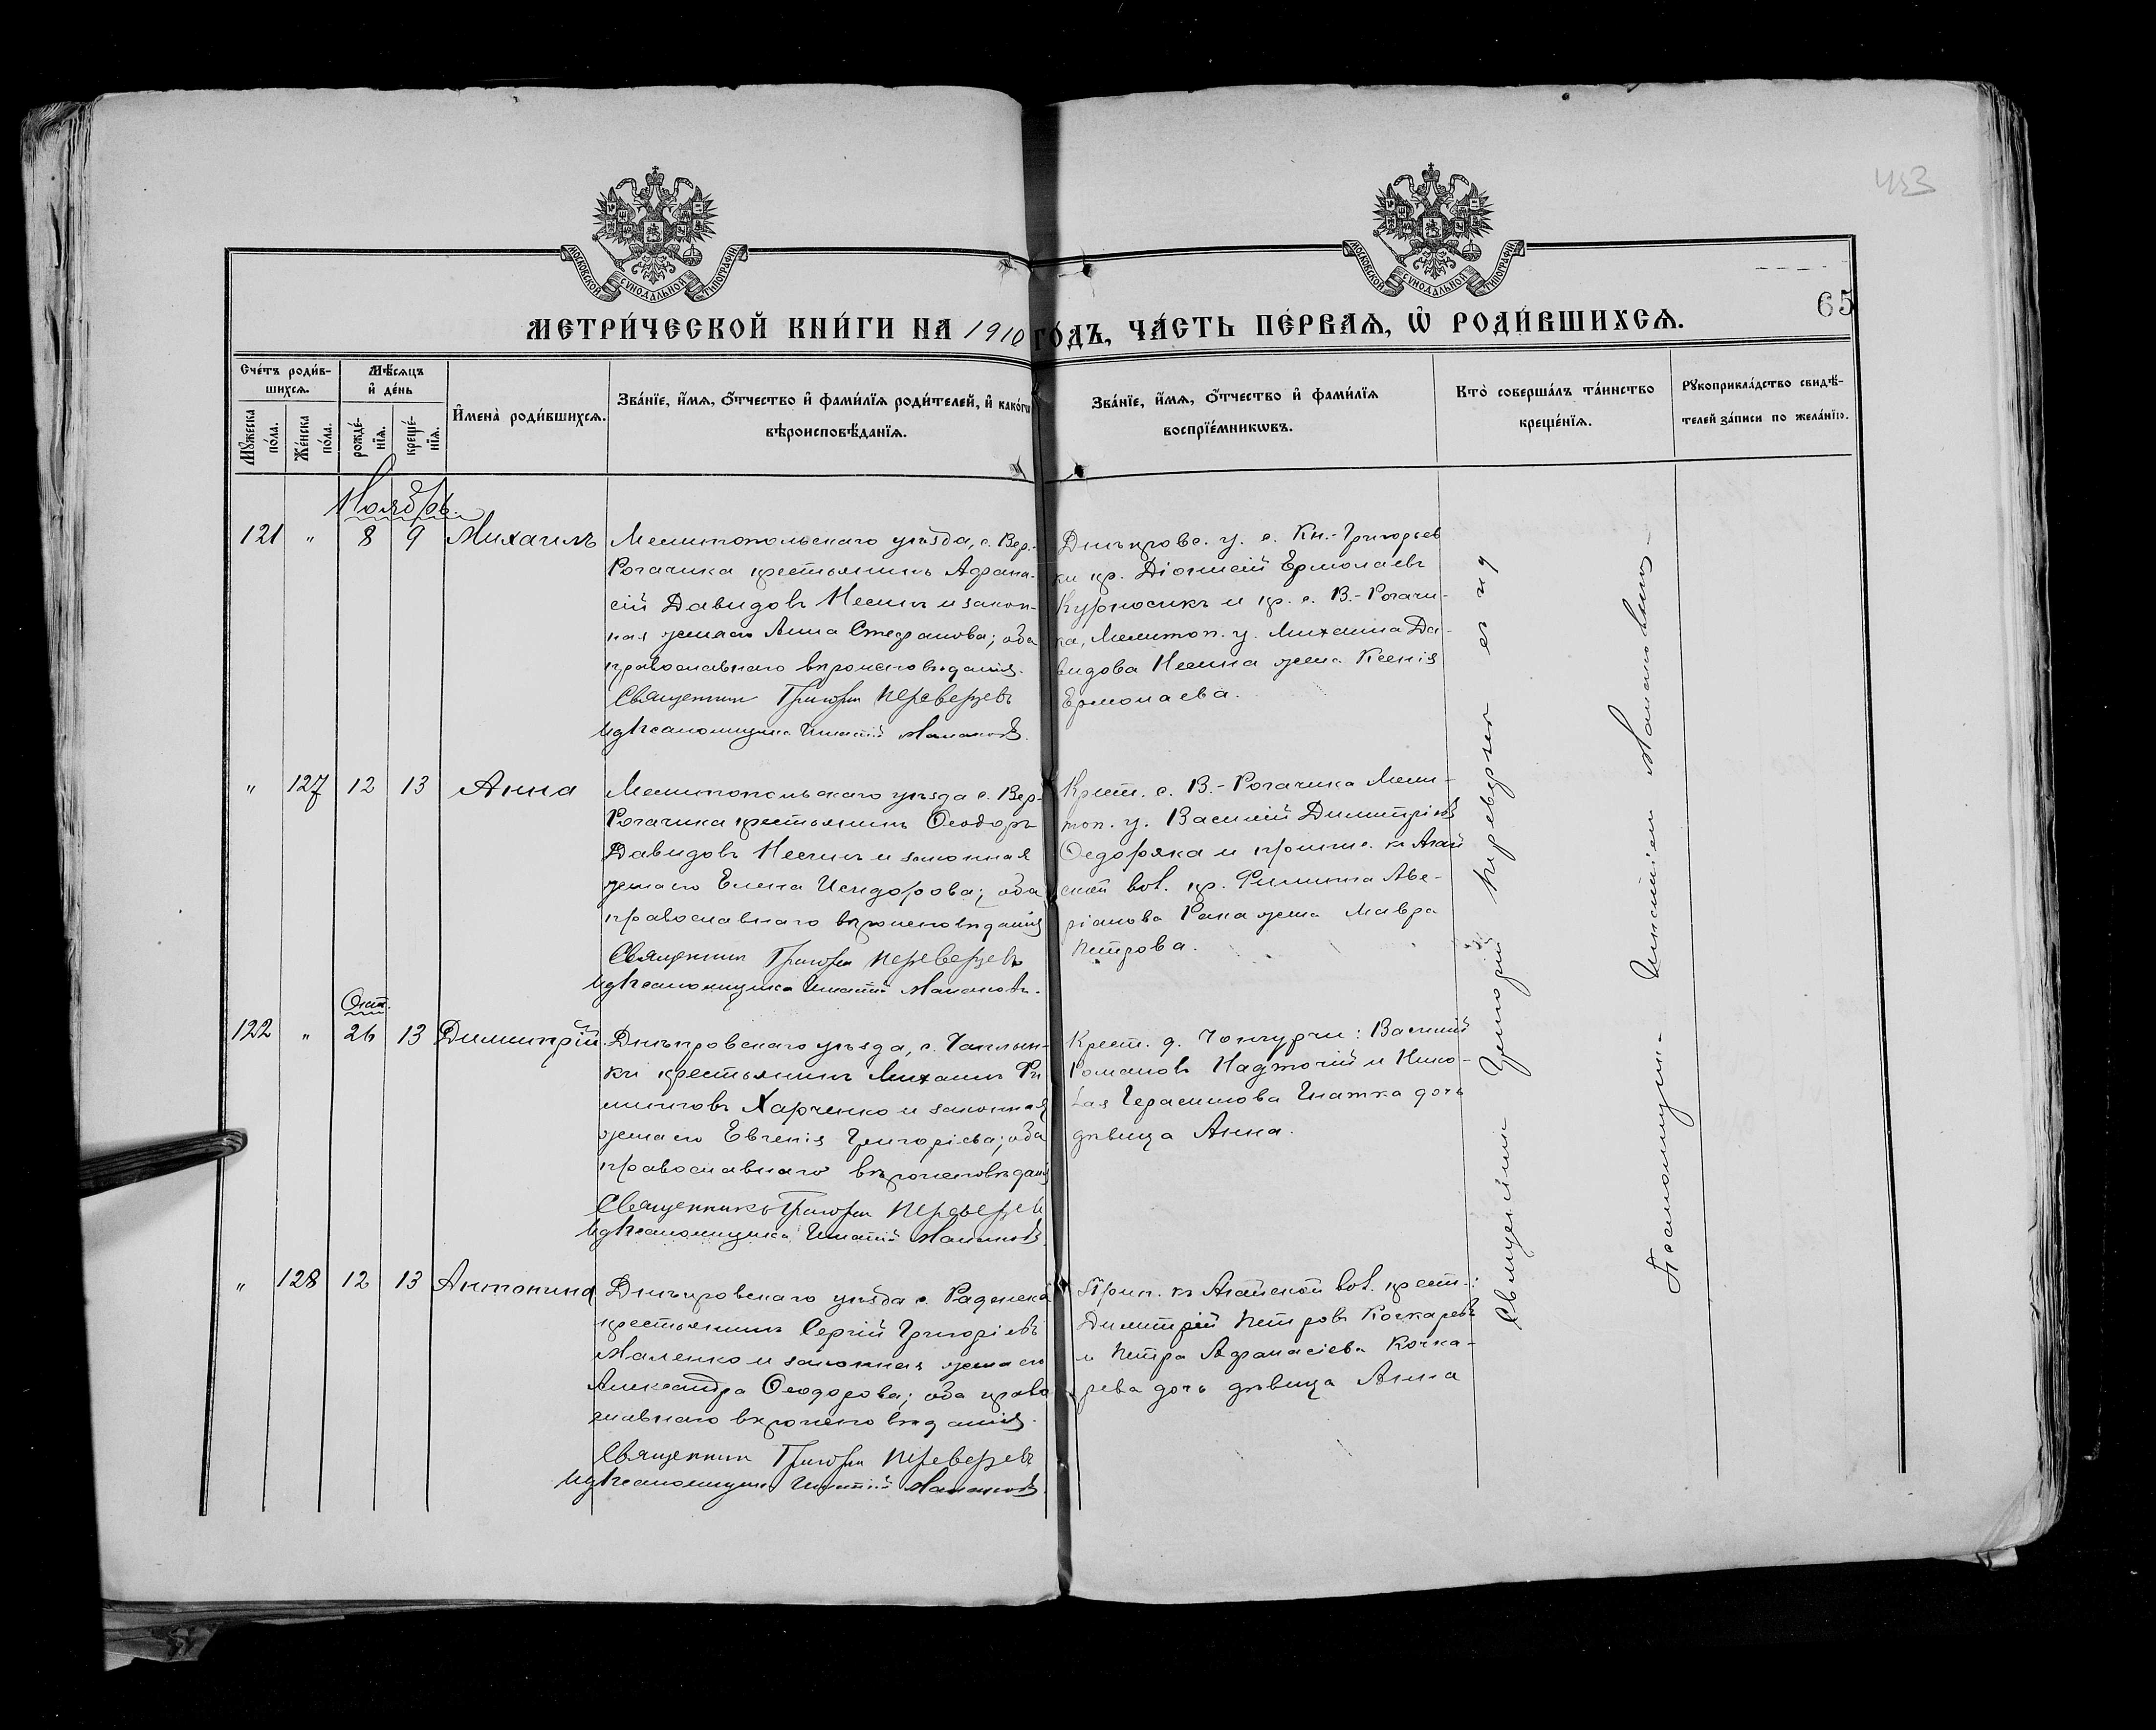 453
МОСКОВСКОЙ СѴНОДАЛЬНОЙ ТИПОГРАФІИ
МОСКОВСКОЙ СѴНОДАЛЬНОЙ ТИПОГРАФІИ
65
МЕТРИ́ЧЕСКОЙ КНИ́ГИ НА 1910 ГО́ДЪ, ЧА́СТЬ ПЕ́РВАѦ, Ѡ҆ РОДИ́ВШИХСѦ.
Сче́тъ роди́в-
шихсѧ.
Мѣ́сѧцъ
и҆ де́нь
Мꙋ́жеска по́ла.
Же́нска по́ла.
рожде́-
нїѧ.
креще́-
нїѧ.
И҆мена̀ роди́вшихсѧ.
Зва́нїе, и҆́мѧ, ѻ҆́тчество и҆ фами́лїѧ роди́телей, и҆ како́гѡ
вѣроисповѣ́данїѧ.
Зва́нїе, и҆́мѧ, ѻ҆́тчество и҆ фами́лїѧ
воспрїе́мникѡвъ.
Кто̀ соверша́лъ та́инство
креще́нїѧ.
Рꙋкоприкла́дство свидѣ́-
телей за́писи по жела́нїю.
Ноябрь.
121 " 8 9 Михаилъ
Мелитопольскаго уѣзда, с. Вер.-
Рогачика крестьянинъ Афана-
сій Давидовъ Несинъ и закон-
ная жена его Анна Стефанова; оба
православнаго вѣроисповѣданія.
Священникъ Григорій Переверзевъ
И д псаломщика Игнатій Малановъ.
Днѣпровс. у. с. Кн.-Григорьев
ки кр. Діонисій Ермолаевъ
Курносикъ и кр. с. В.-Рогачи-
ка, Мелитоп. у. Михаила Да-
видова Несина жена Ксенія
Ермолаева.
" 127 12 13 Анна
Мелитопольскаго уѣзда с. Вер.-
Рогачика крестьянинъ Ѳеодоръ
Давидовъ Несинъ и законная
жена его Елена Исидорова; оба
православнаго вѣроисповѣданія
Священникъ Григорій Переверзевъ
И д псаломщика Игнатій Малановъ.
Крест. с. В.-Рогачика Мели-
топ. у. Василій Димитріевъ
Ѳедоряка и припис. къ Агай
ской вол. кр. Филиппа Аве-
ріанова Рака жена Мавра
Петрова.
Окт.
122 " 26 13 Димитрій
Днѣпровскаго уѣзда, с. Чаплын-
ки крестьянинъ Михаилъ Фи
липповъ Харченко и законная
жена его Евгенія Григоріева; оба
православнаго вѣроисповѣданія
Священникъ Григорій Переверзевъ
И д псаломщика Игнатій Малановъ.
Крест. д. Чонгурчи: Василій
Романовъ Надточій и Нико-
лая Герасимова Гнатка дочь
дѣвица Анна.
" 128 12 13 Антонина
Днѣпровскаго уѣзда с. Раденска
крестьянинъ Сергій Григоріевъ
Маленко и законная жена его
Александра Ѳеодорова; оба право
славнаго вѣроисповѣданія.
Священникъ Григорій Переверзевъ
И д псаломщика Игнатій Малановъ.
Прип. къ Агайской вол. крест.:
Димитрій Петровъ Кочкаревъ
и Петра Афанасіева Кочка-
рева дочь дѣвица Анна
Священникъ Григорій Переверзевъ
Псаломщикъ Игнатіемъ Малановымъ